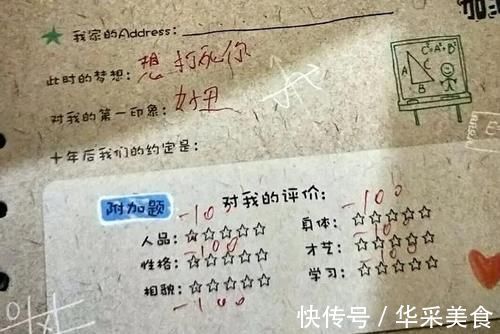 加油
★ 我家的Address:
此时的梦想: 想打死你
对我的第一印象: 好丑
十年后我们的约定是:
C²=A²+B²
A C B
附加题 对我的评价:
-100 -100
人品: ☆☆☆☆☆ 身体: ☆☆☆☆☆
-100 -100
性格: ☆☆☆☆☆ 才艺: ☆☆☆☆☆
-100
相貌: ☆☆☆☆☆ 学习: ☆☆☆☆☆
-100
快传号/华采美食